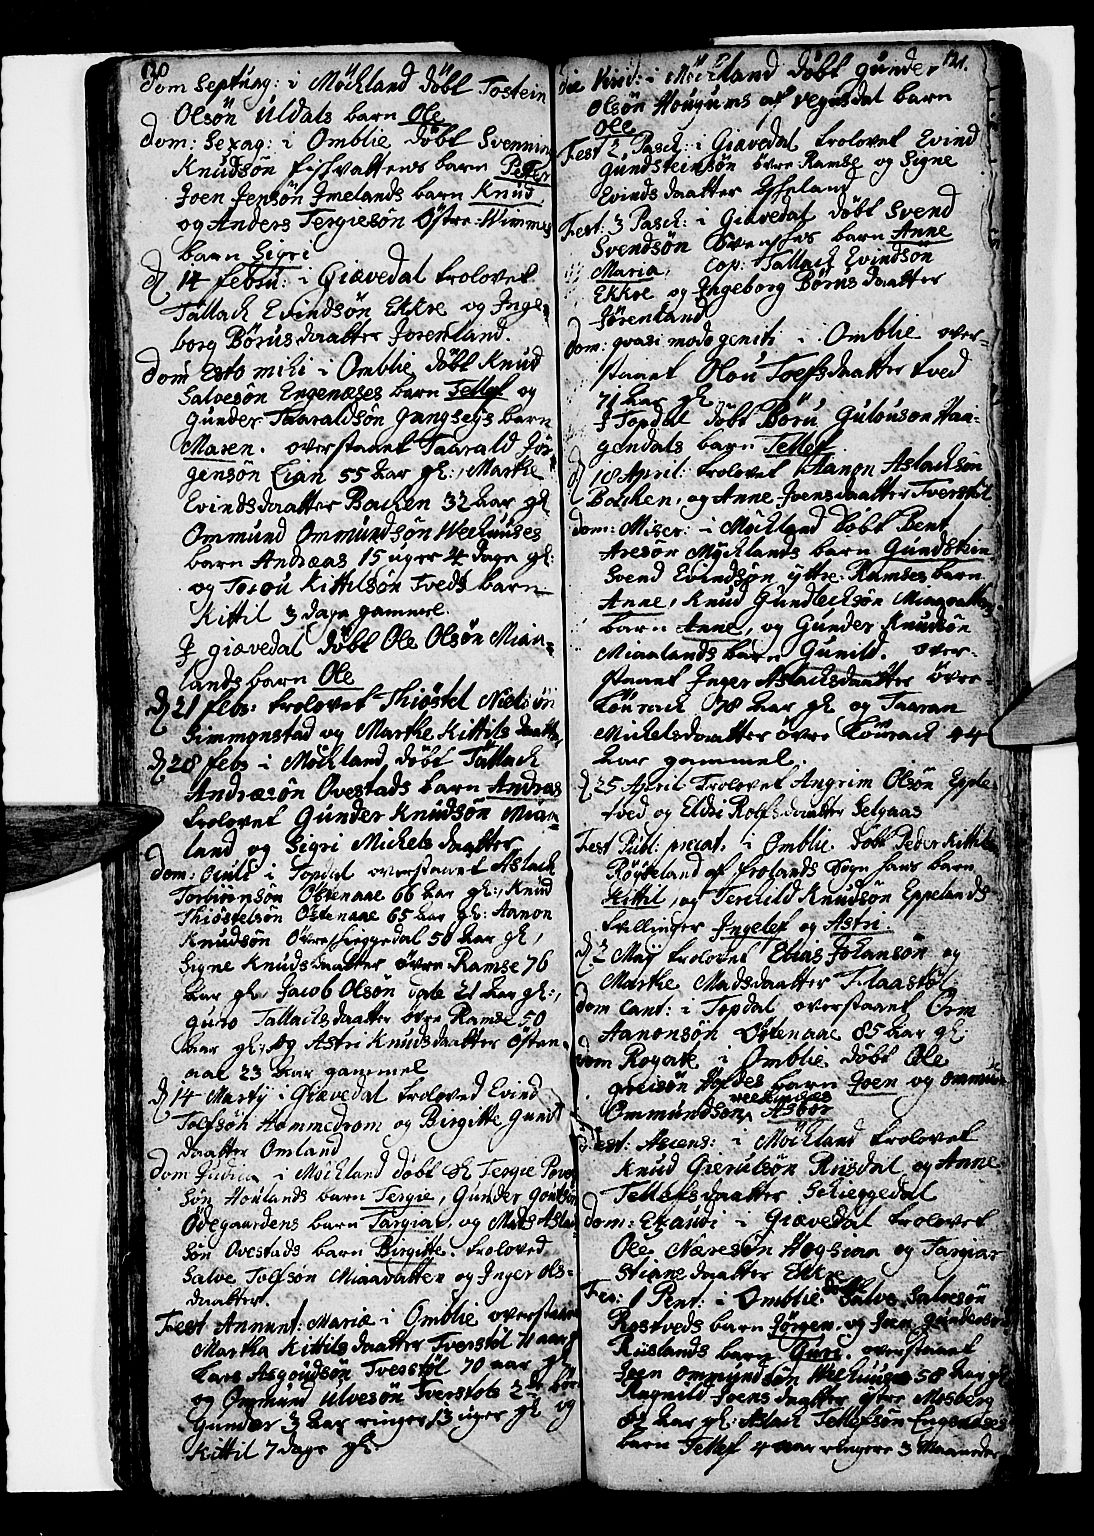 120
dom Septuag: i Mÿckland döbt Tostein
Olsön Uldals barn Ole
dom: Sexag: i Omblie döbt Svenning
Knudsön fishvattens barn Peter
Joen Jensön Jmelands barn Knud
og Anders Tergiesön Östre-Wimmes
barn Sigri
d 14 febru: i Giævedal trolovet
Tallack Evindsön Ekkre og Jnge-
borg Börusdaatter Jorenland.
dom Esto mihi i Omblie döbt Knud
Salvesön Engenæses barn Tellef og
Gunder Taaraldsön Gangseÿs barn
Maren. overstaaet Taarald Jör-
gensön Lian 55 aar gl:, Marthe
Evindsdaatter Backen 32 aar gl
Ommund Ommundsön Weehuuses
barn Andreas 15 uger 4 dage gl:
og Kittilsön Tveds barn
Kittil 3 dage gammel.
J giævedal döbt Ole Olsön Mian-
lands barn Ole
d 21 feb: trolovet Thiöstel Nielsön
Simmonstad og Marthe Kittilsdaatter
d 28 feb: i Mÿckland, döbt Tallack
Andræsön Ovestads barn Andreas
trolovet Gunder Knudsön Mian-
land og Sigri Michelsdaatter
dom: Oculi i Topdal overstaaet Aslack
Torbiörnsön Östenaae 66 aar gl:, Knud
Thiöstelsön Östenaae 65 aar gl: Aanon
Knudsön Övre 50 aar gl,
Signe Knudsdaatter övre Ramse 76
aar gl, Jacob Olsön 21 aar gl:,
guro Tallacksdaatter övre Ramse 50
aar gl: og Astri Knudsdaatter Östen-
aae 23 aar gammel
d 14 Martÿ i Giævedal trolovet Evind
Tolfsön Hommedrom og Birgitte Gund
daatter Omland
dom Judica i Mÿckland döbt Tergie
sön Houlands barn Tergie, Gunder
Ödegaardens barn Targiar, og Mads Asla
sön Ovestads barn Birgitte. trolovet
Salve Tolfsön Miaavatten og Jnger Ols-
daatter.
Fest Annunt: Mariæ i Omblie overstaaet
Martha Kittilsdaatter Tverstöl 11 aar
Lars Asgoudsön Tvesstöl 70 aar gl
og Ommund Ulvesön Tverstöls 2de bör
Gunder 3 aar ringer 13 uger gl og
Kittil 7 dage gl.
121.
die Virid: i Mÿckland döbt gunder
Olsön Hougums af Vegusdal barn
Ole
Fest 2 Pasch: i Giævedal trolovet Evind
Gundsteinsön övre Ramse og Signe
Evindsdaatter
Fest: 3 Pasch: i Giævedal döbt Svend
Svendsön Svenshes barn Anne
Maria, Cop: Tallack Evindsön
Ekkre og Jngeborg Börusdaatter
Jörenland
dom: quasi modo geniti i Omblie over-
staaet Olou Toefsdaatter tved
71 aar gl
J Topdal döbt Börü Gulouson Hau-
gendals barn Tellef
d 18 April: trolovet Aanon Aslacksön
Backen, og Anne Joensdaatter Tverstöl
dom: Miser: i Mÿckland döbt Bent
Aresön Mÿcklands barn Gundstein
Svend Evindsön ÿttre Ramses barn
Anne, Knud Gundlecksön Miaavattens
barn Anne, og Gunder Knudsön
Miaalands barn Gunild. over-
staaet Jnger Aslacksdaatter övre
78 aar gl og Taaran
Michelsdaatter övre 44
aar gammel.
d 25 April trolovet Angrim Olsön Epple-
tved og Eldri Rolfsdaatter Selgaas
Fest Publ: precat: i Omblie döbt Peder Kittils
Röÿseland af frolands Sogn hans barn
Kittil, og Terkild Knudsön Eppelands
tvillinger Jngelef og Astri.
d 2 Maÿ trolovet Elias Johansön og
Marthe Madsdaatter Flaastöl
dom Cant: i Topdal overstaaet Orm
Aanonsön Östenaae 85 aar gl:
dom Rogate i Omblie döbt Ole
greisön Hyldes barn Joen og Ommün
Ommundsön weehuuses Asbör
Fest: Ascens: i Mÿckland trolovet
Knud Gierulsön Riisdal og Anne
Tellefsdaatter Scheggedal
dom: Exaudi i Giævedal trolovet
Ole Næresön Hogsiaa og Targiær
Stianedaatter Ekkre
Fer: 1 Pent: i Omblie döbt Salve Salvesön
Rostveds barn Jörgen, og Jens gundersön
Riislands barn Guri, overstaaet
Joen Ommundsön Weehuuse 58 aar gl
Ragnild Joensdaatter ÿtre Mosberg
82 aar gl: Aslack Tellefsön Engenæses
barn Tellef 4 aar ringere 3 Maaneder